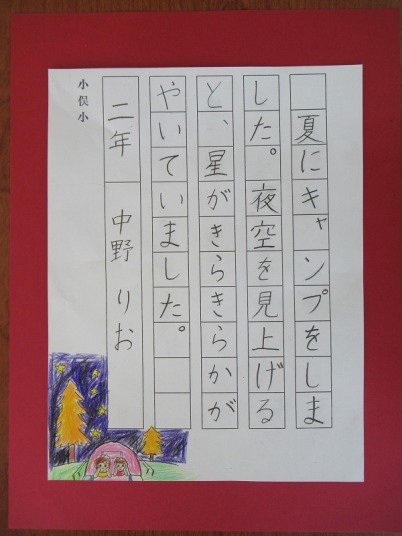 夏にキャンプをしま
した。夜空を見上げる
と、星がきらきらかが
やいていました。
二年 中野 りお
小俣小